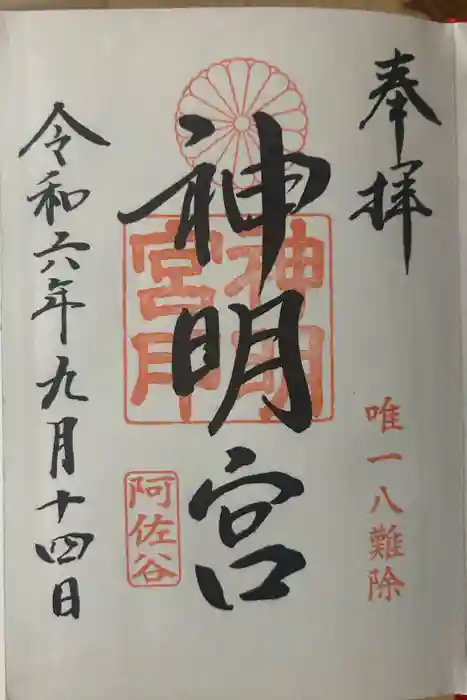 奉拝
唯一八難除
神明宮
神明宮印
阿佐谷
令和六年九月十四日